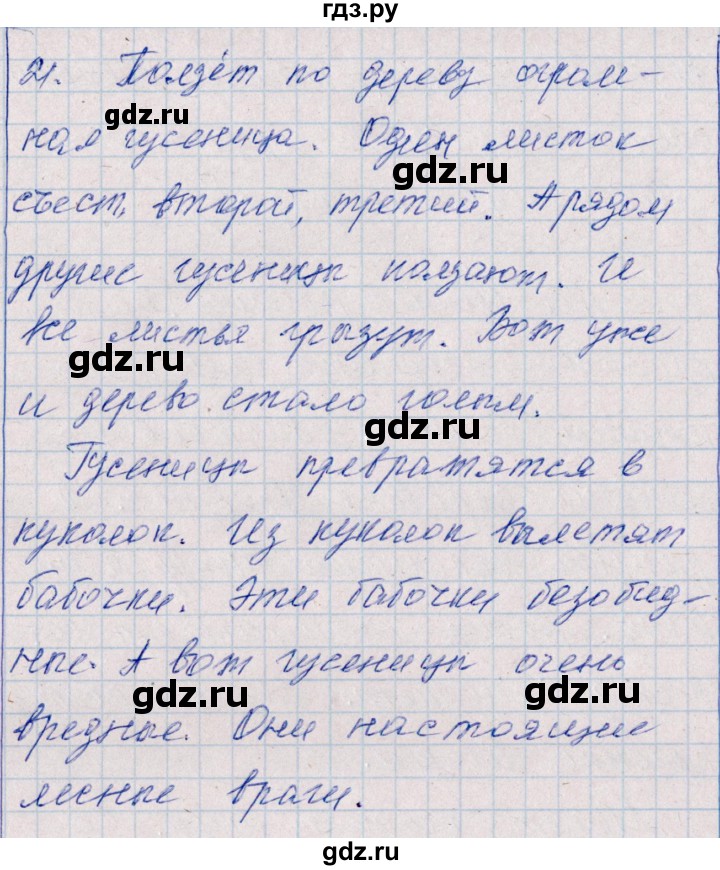 гдз.ру
21. Ползёт по дереву огром-
gdz.ru
ная гусеница. Один листок
gdz.ru
съест, второй, третий. А рядом
другие гусеницы ползают. И
все листья грызут. Вот уже
gdz.ru
и дерево стало голым.
gdz.ru
Гусеницы превратятся в
куколок. Из куколок вылетят
gdz.ru
бабочки. Эти бабочки безобид-
ные. А вот гусеницы очень
gdz.ru
gdz.ru
вредные. Они настоящие
лесные враги.
gdz.ru